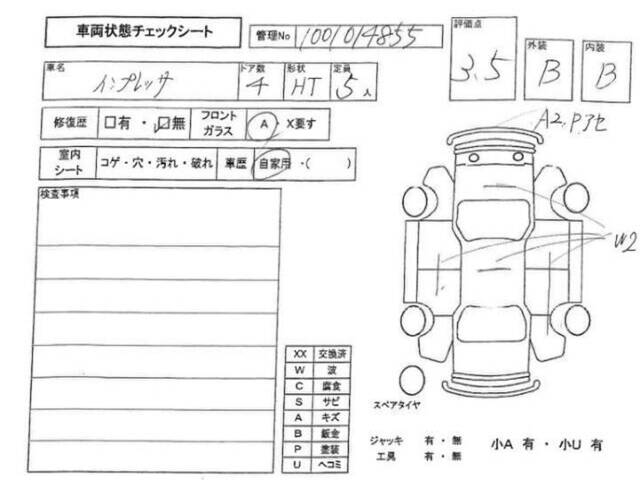 車両状態チェックシート
管理No 1001014855
評価点 3.5
外装 B
内装 B
車名 インプレッサ
ドア数 4
形状 HT
定員 5人
修復歴 □有・☑無
フロントガラス A・X要す
室内シート コゲ・穴・汚れ・破れ
車歴 自家用・( )
検査事項
A2.P.アセ
W2
XX 交換済
W 波
C 腐食
S サビ
A キズ
B 鈑金
P 塗装
U ヘコミ
スペアタイヤ
ジャッキ 有・無
工具 有・無
小A 有・小U 有